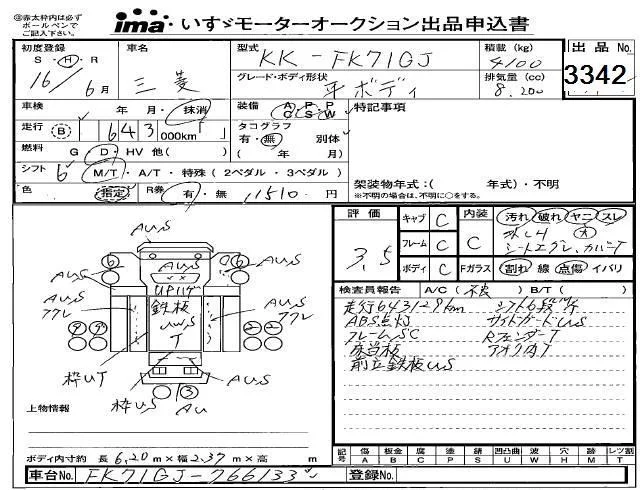 ◎赤太枠内は必ず
ボールペンで
ご記入下さい。
ima いすゞモーターオークション出品申込書
初度登録 S・H・R 16/6月
車名 三菱
型式 KK-FK71GJ
積載 (kg) 4100
出品 No. 3342
グレード・ボディ形状 平ボディ
排気量 (cc) 8.200
車検 年 月・抹消
装備 A P P C S W
特記事項
走行 B 643 000km
タコグラフ 有・無 別体 ( 年 月)
燃料 G D・HV 他( )
シフト 6 M/T・A/T・特殊(2ペダル・3ペダル)
架装物年式:( 年式)・不明
※不明の場合は、不明に○をする。
色 指定 R券 有・無 11510 円
評価 3.5
キャブ C
フレーム C
ボディ C
内装 C
汚れ 破れ ヤニ スレ
Fガラス 割れ 線 点傷 イバリ
検査員報告 A/C(不良) B/T( )
走行643129km シフト6段
ABS点灯 サイドガードUS
フレームSC RフェンダーT
床当板
前立鉄板US
AUS
AUS
AUS
UPハゲ
AUS
アクレ
鉄板
UWS
T
AUS
アクレ
枠UT
枠US
AUS
AU
上物情報
ボディ内寸約 長 6.20 m×幅 2.37 m×高 m
記号 傷 A 板金 B 腐 C 塗 P 錆 S 凹凸曲 U 波 W 穴 H 跡 M レツ割 T
車台No. FK71GJ-766133
登録No.